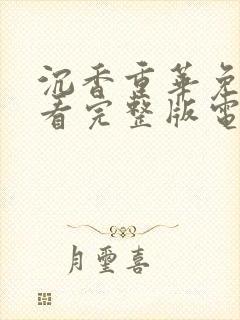 沉香重華免
看完整版電
月璽喜